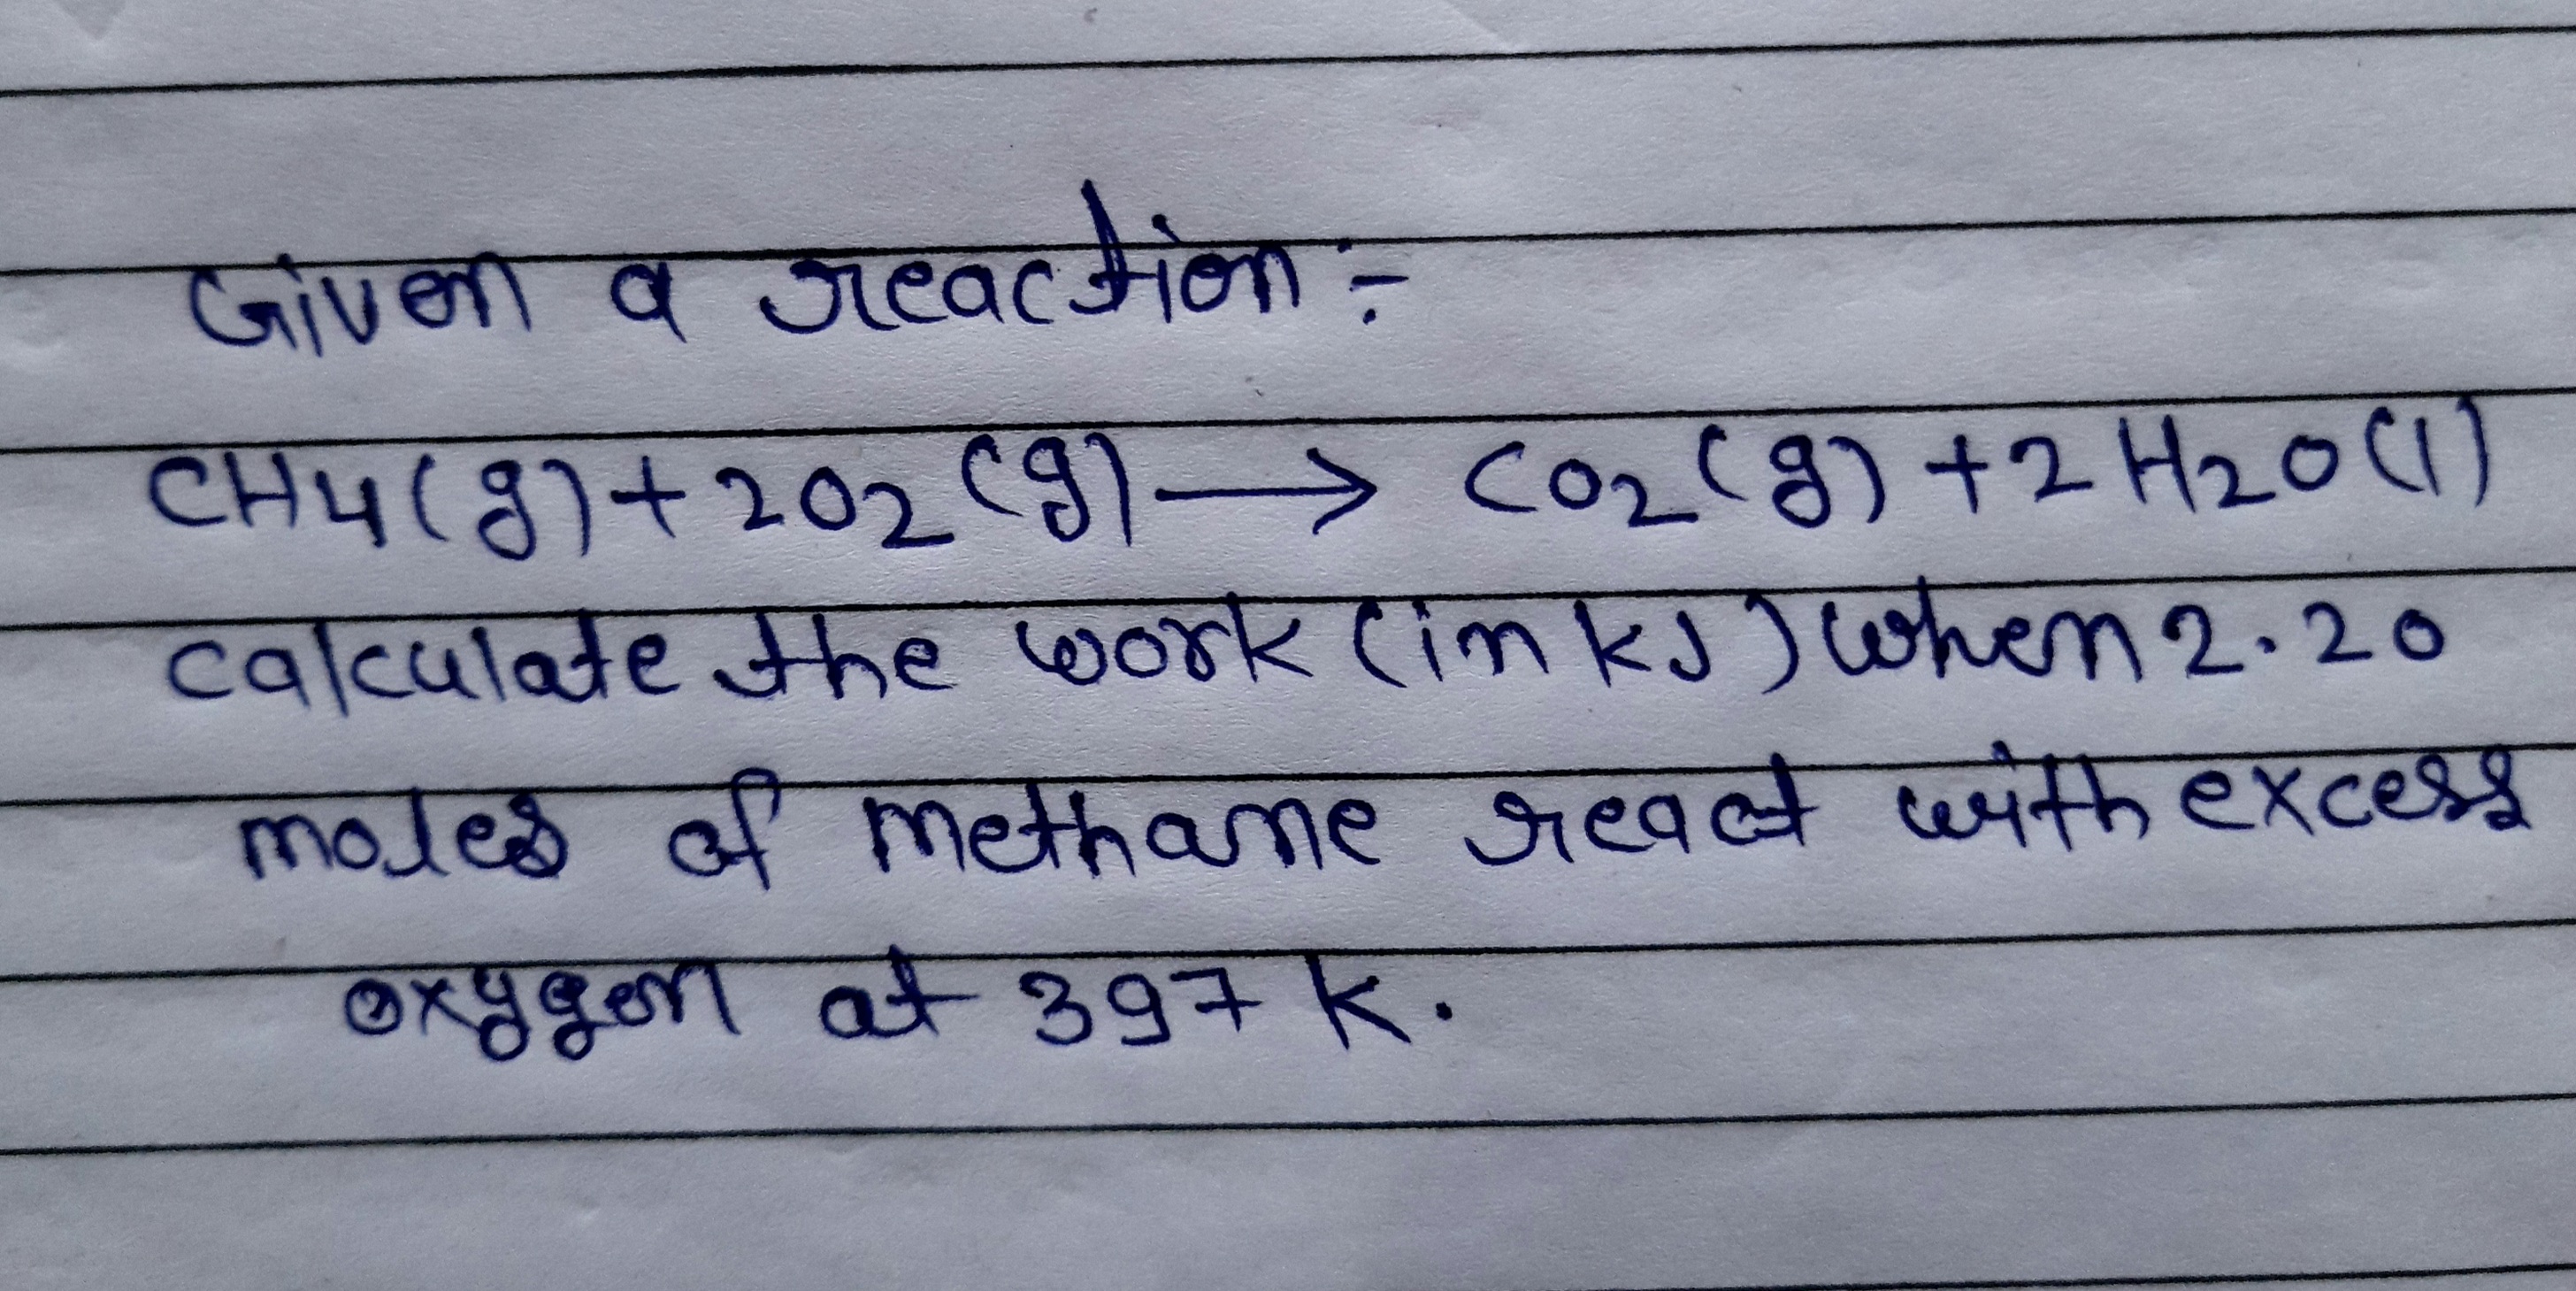 Given a reaction :-
CH4(g) + 2O2(g) → CO2(g) + 2H2O(l)
calculate the work (in kJ) when 2.20
moles of methane react with excess
oxygen at 397 K.